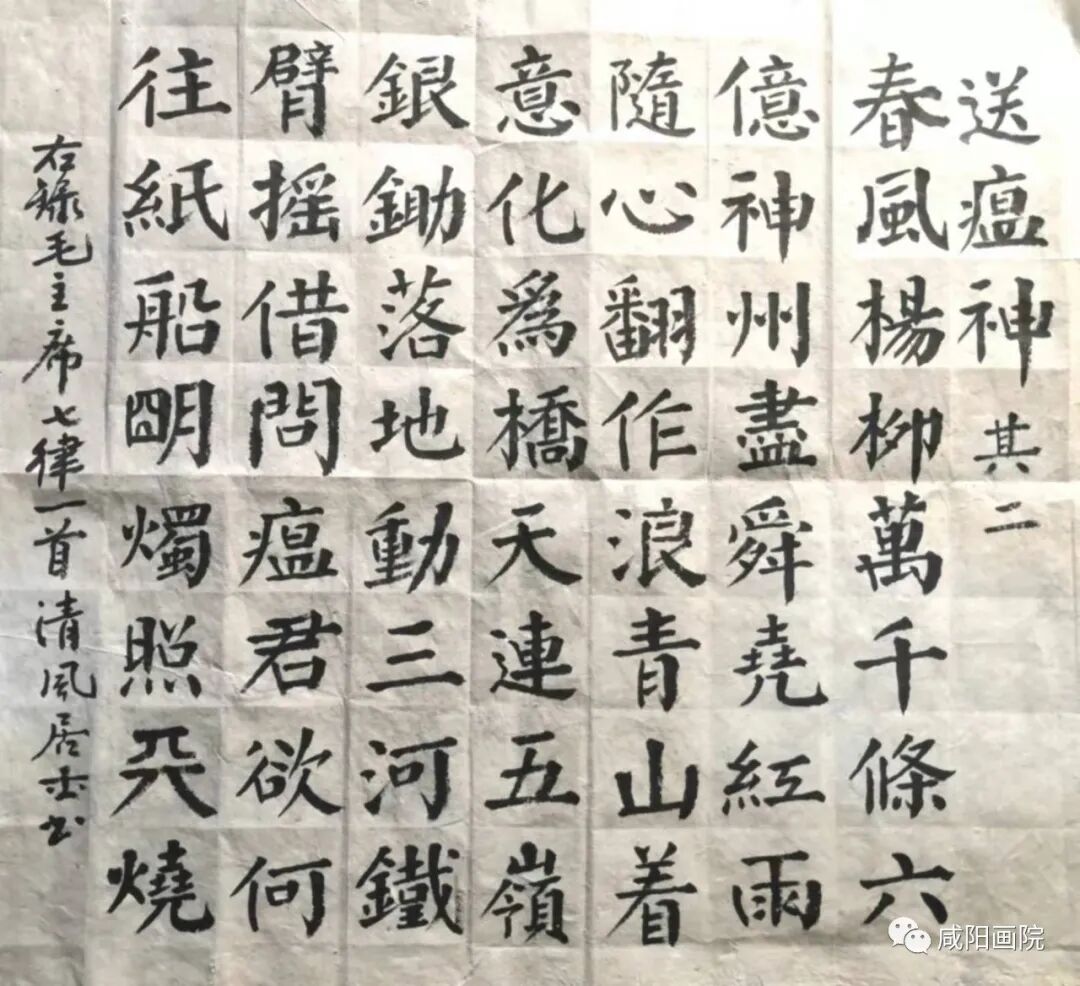 送瘟神其二
春風楊柳萬千條六
億神州盡舜堯紅雨
隨心翻作浪青山着
意化為橋天連五嶺
銀鋤落地動三河鐵
臂摇借問瘟君欲何
往紙船明燭照天燒
右録毛主席七律一首清風居士书
咸阳画院